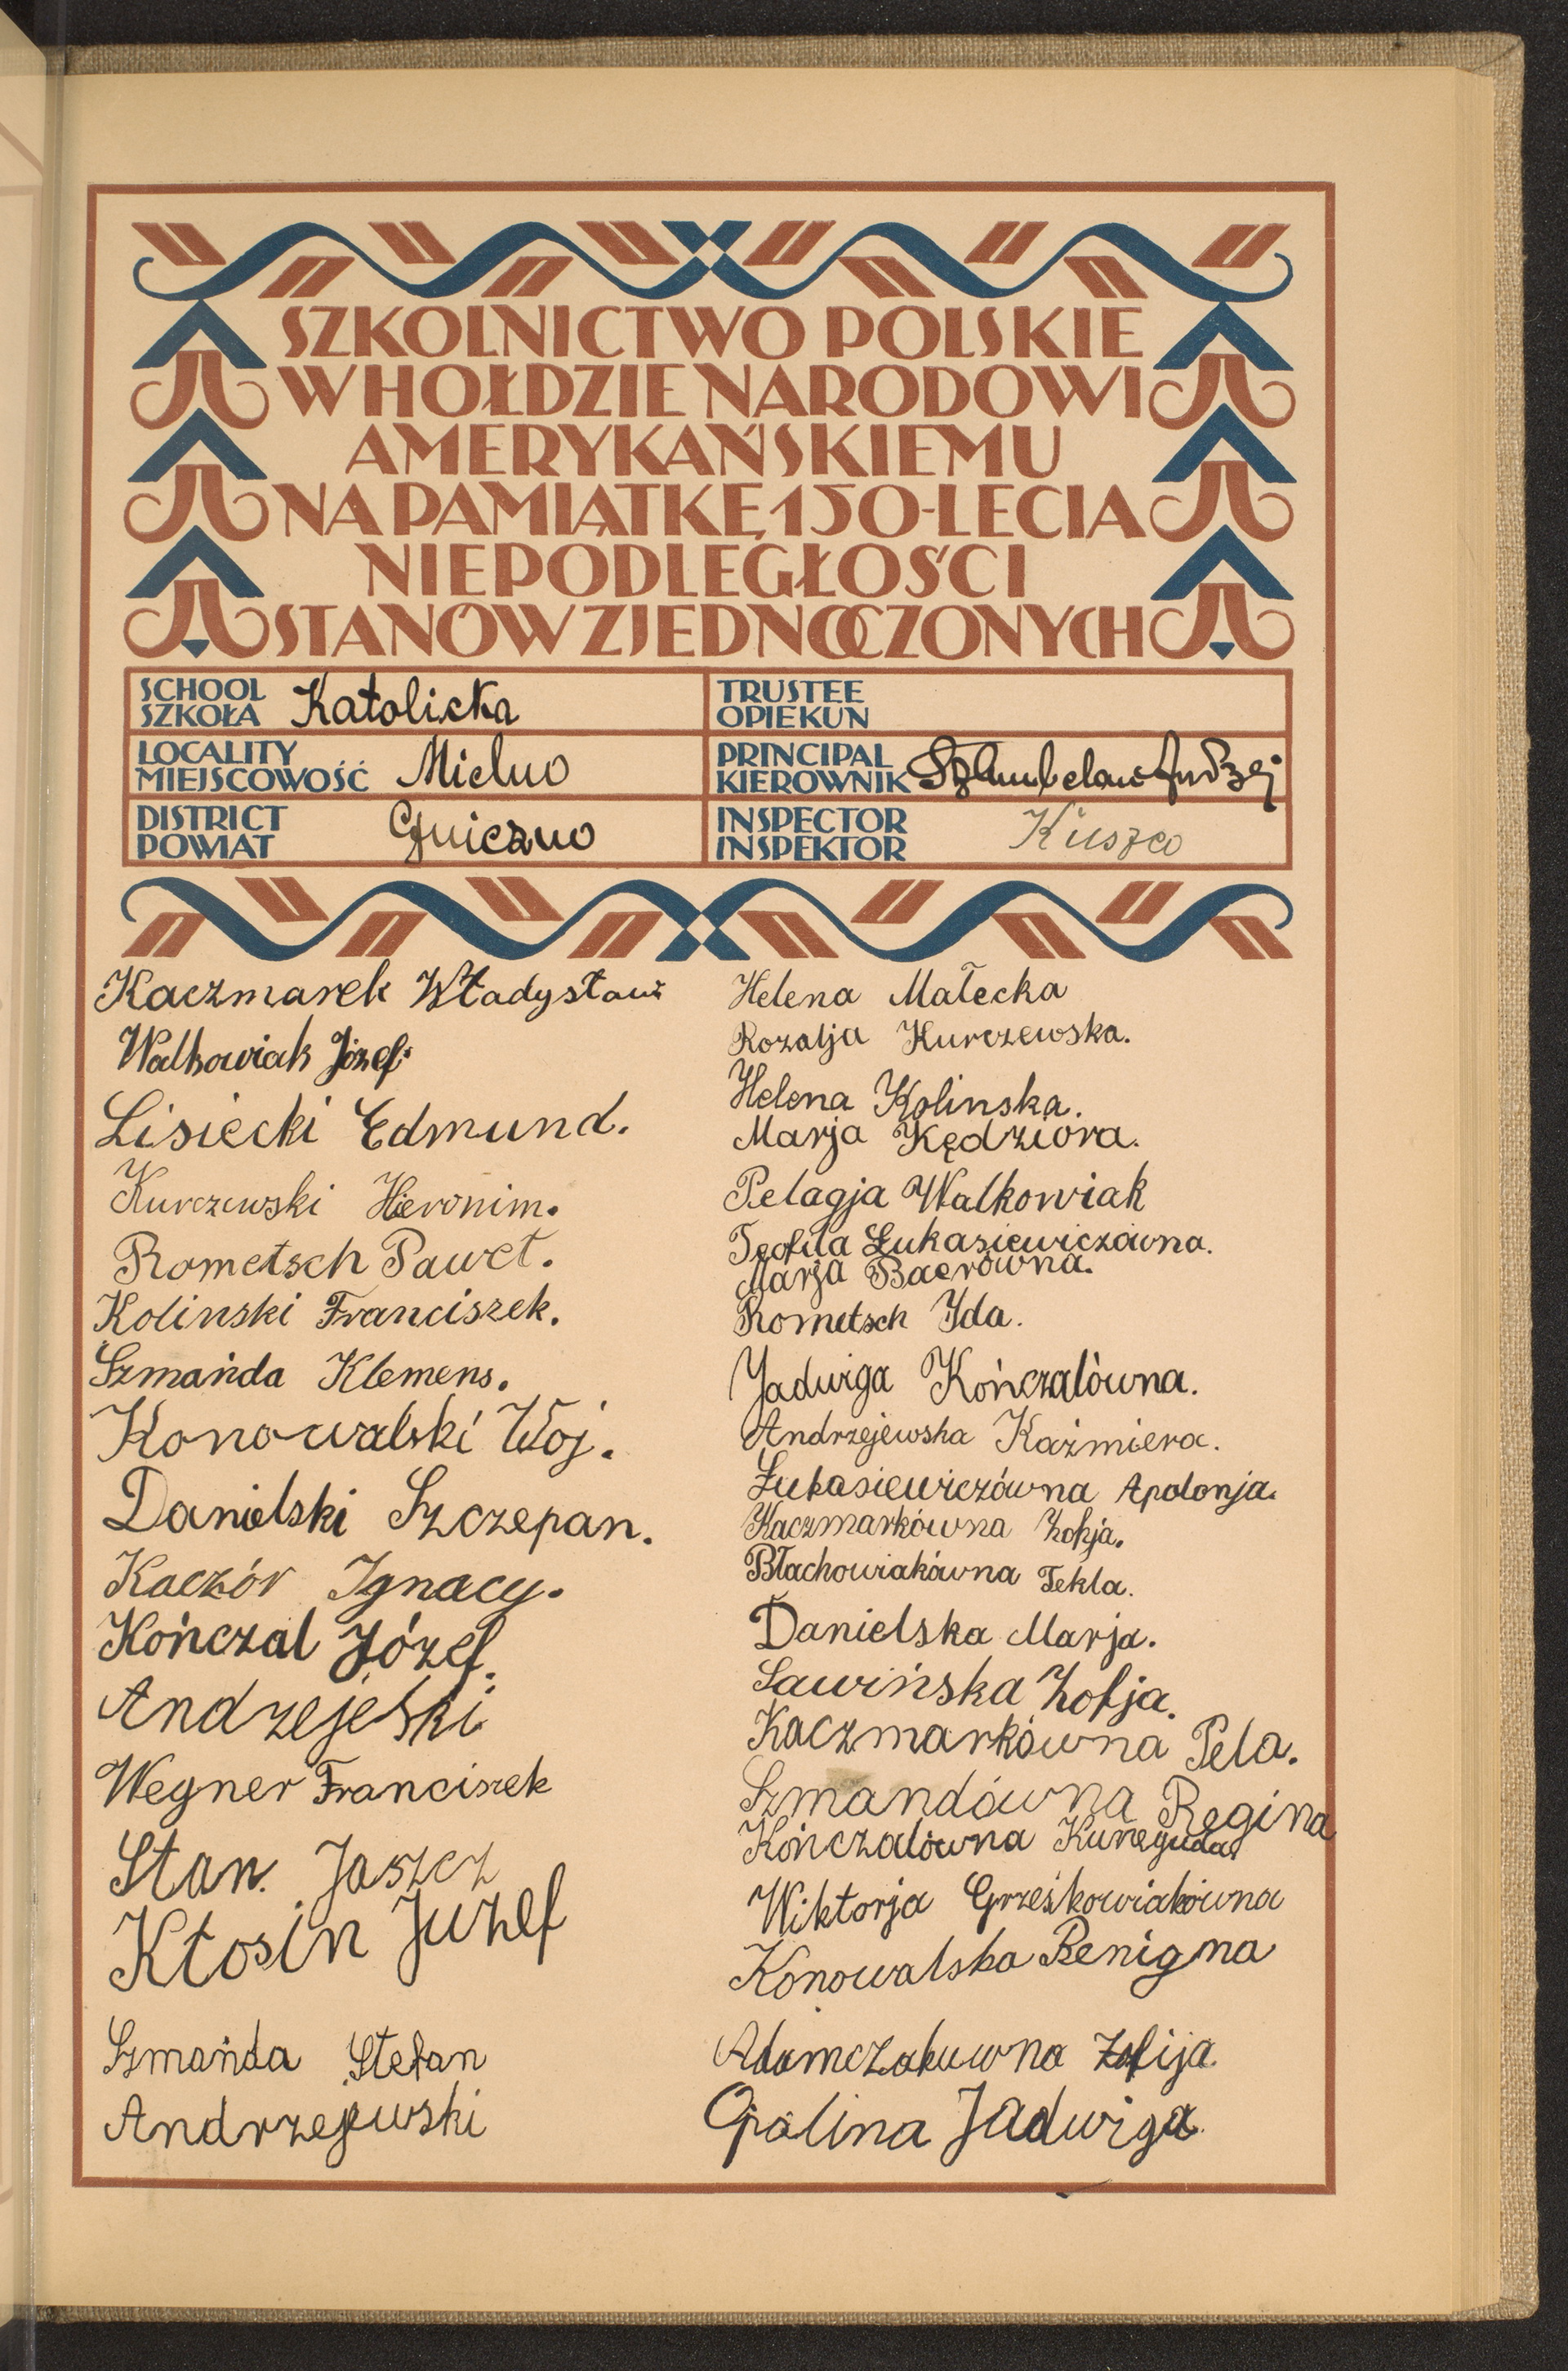 SZKOLNICTWO POLSKIE
W HOŁDZIE NARODOWI
AMERYKAŃSKIEMU
NA PAMIĄTKĘ 150-LECIA
NIEPODLEGŁOŚCI
STANÓW ZJEDNOCZONYCH
SCHOOL
SZKOŁA Katolicka
TRUSTEE
OPIEKUN
LOCALITY
MIEJSCOWOŚĆ Mielno
PRINCIPAL
KIEROWNIK
DISTRICT
POWIAT Gniezno
INSPECTOR
INSPEKTOR
Kaczmarek Władysław
Walkowiak Józef.
Lisiecki Edmund.
Kurczewski Hieronim.
Rometsch Paweł.
Kolinski Franciszek.
Szmańda Klemens.
Konowalski Woj.
Danielski Szczepan.
Kaczór Ignacy.
Kończal Józef.
Andzejeski
Wegner Franciszek
Stan. Jaszcz
Kłosin Juzef
Szmańda Stefan
Andrzejewski
Helena Małecka
Rozalja Kurczewska.
Helena Kolinska.
Marja Kędziora.
Pelagja Walkowiak
Teofila Łukasiewiczówna.
Marja Baerówna.
Rometsch Ida.
Jadwiga Kończalówna.
Andrzejewska Kaźmiera.
Łukasiewiczówna Apolonja.
Kaczmarkówna Zofja.
Błachowiakówna Tekla.
Danielska Marja.
Sawińska Zofja.
Kaczmarkówna Pela.
Szmandówna Regina
Kończalówna Kuneguda
Wiktorja Grześkowiakówna
Konowalska Benigna
Adamczakuwna Zofija.
Opalina Jadwiga.